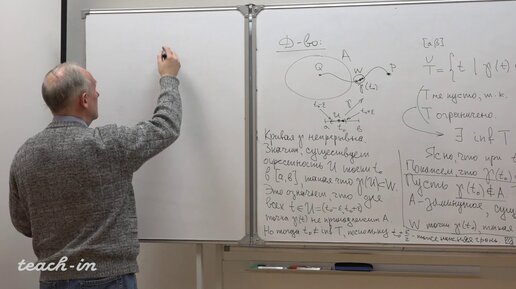 Д-во:
A
Q
W
P
γ(t₀)
γ
t₀-ε
t₀+ε
U
a
t₀
B
Кривая γ непрерывна.
Значит, существует
окрестность U точки t₀
в [a,b], такая что γ(U)⊂W.
Это означает, что для
всех t∈U=(t₀-ε,t₀+ε)
точка γ(t) не принадлежит A
Но тогда t₀≠inf T, поскольку t₀+
[a,b]
T = { t | γ(t)
T не пусто, т.к.
T ограничено.
∃ inf T
Ясно, что при t
Покажем, что γ(t₀)
Пусть γ(t₀)∉A
A-замкнутое, сущ
W точки γ(t₀), такая
- тоже нижняя грань
teach-in